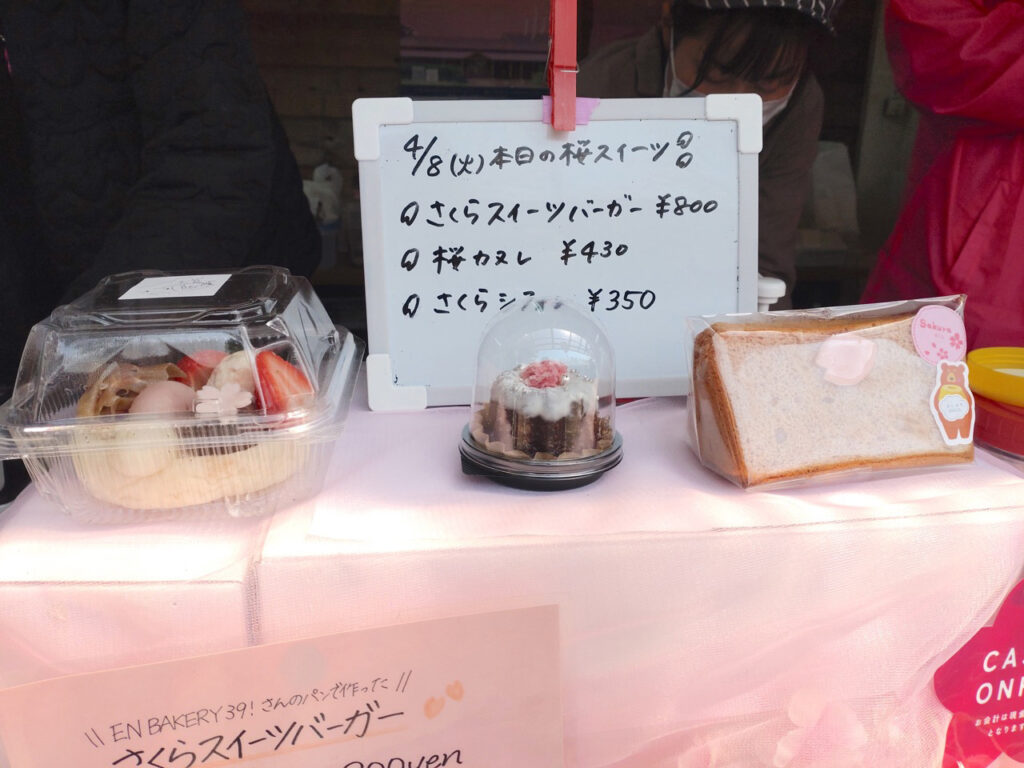 4/8(火)本日の桜スイーツ
さくらスイーツバーガー ¥800
桜カヌレ ¥430
さくらシフォン ¥350
Sakura
\\ EN BAKERY39!さんのパンで作った //
さくらスイーツバーガー
00yen
CA
ON
お会計は現金
となります